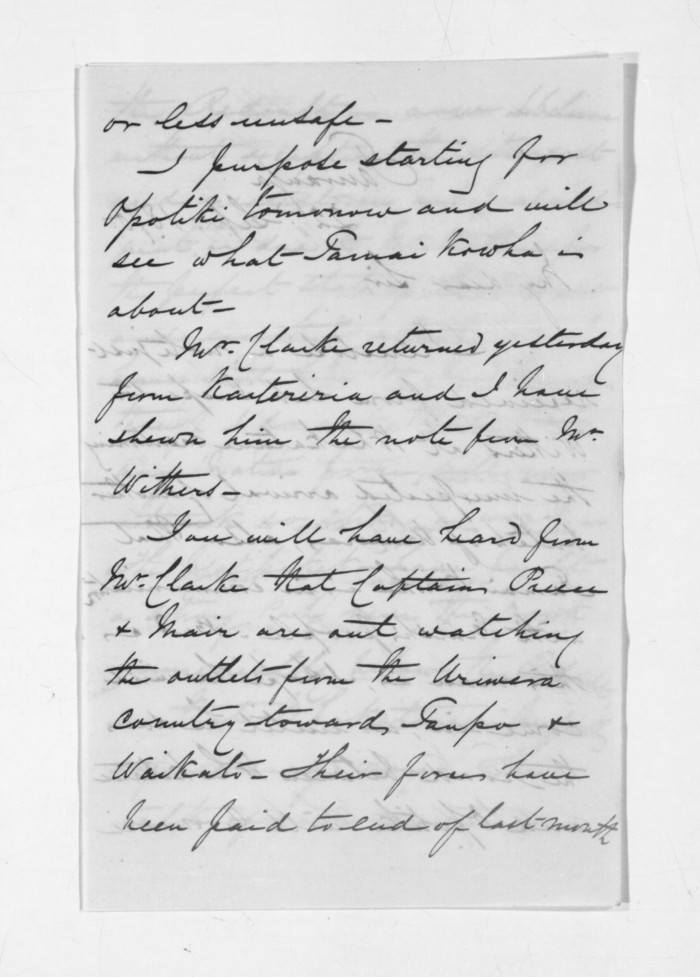 or less unsafe -
I purpose starting for
Opotiki tomorrow and will
see what Tamai Kowha is
about -
Mr. Clarke returned yesterday
from Kaiteriria and I have
shewn him the note from Mr.
Withers -
You will have heard from
Mr. Clarke that Captains Preece
& Mair are out watching
the outlets from the Uriwera
country towards Taupo &
Waikato - Their forces have
been paid to end of last month